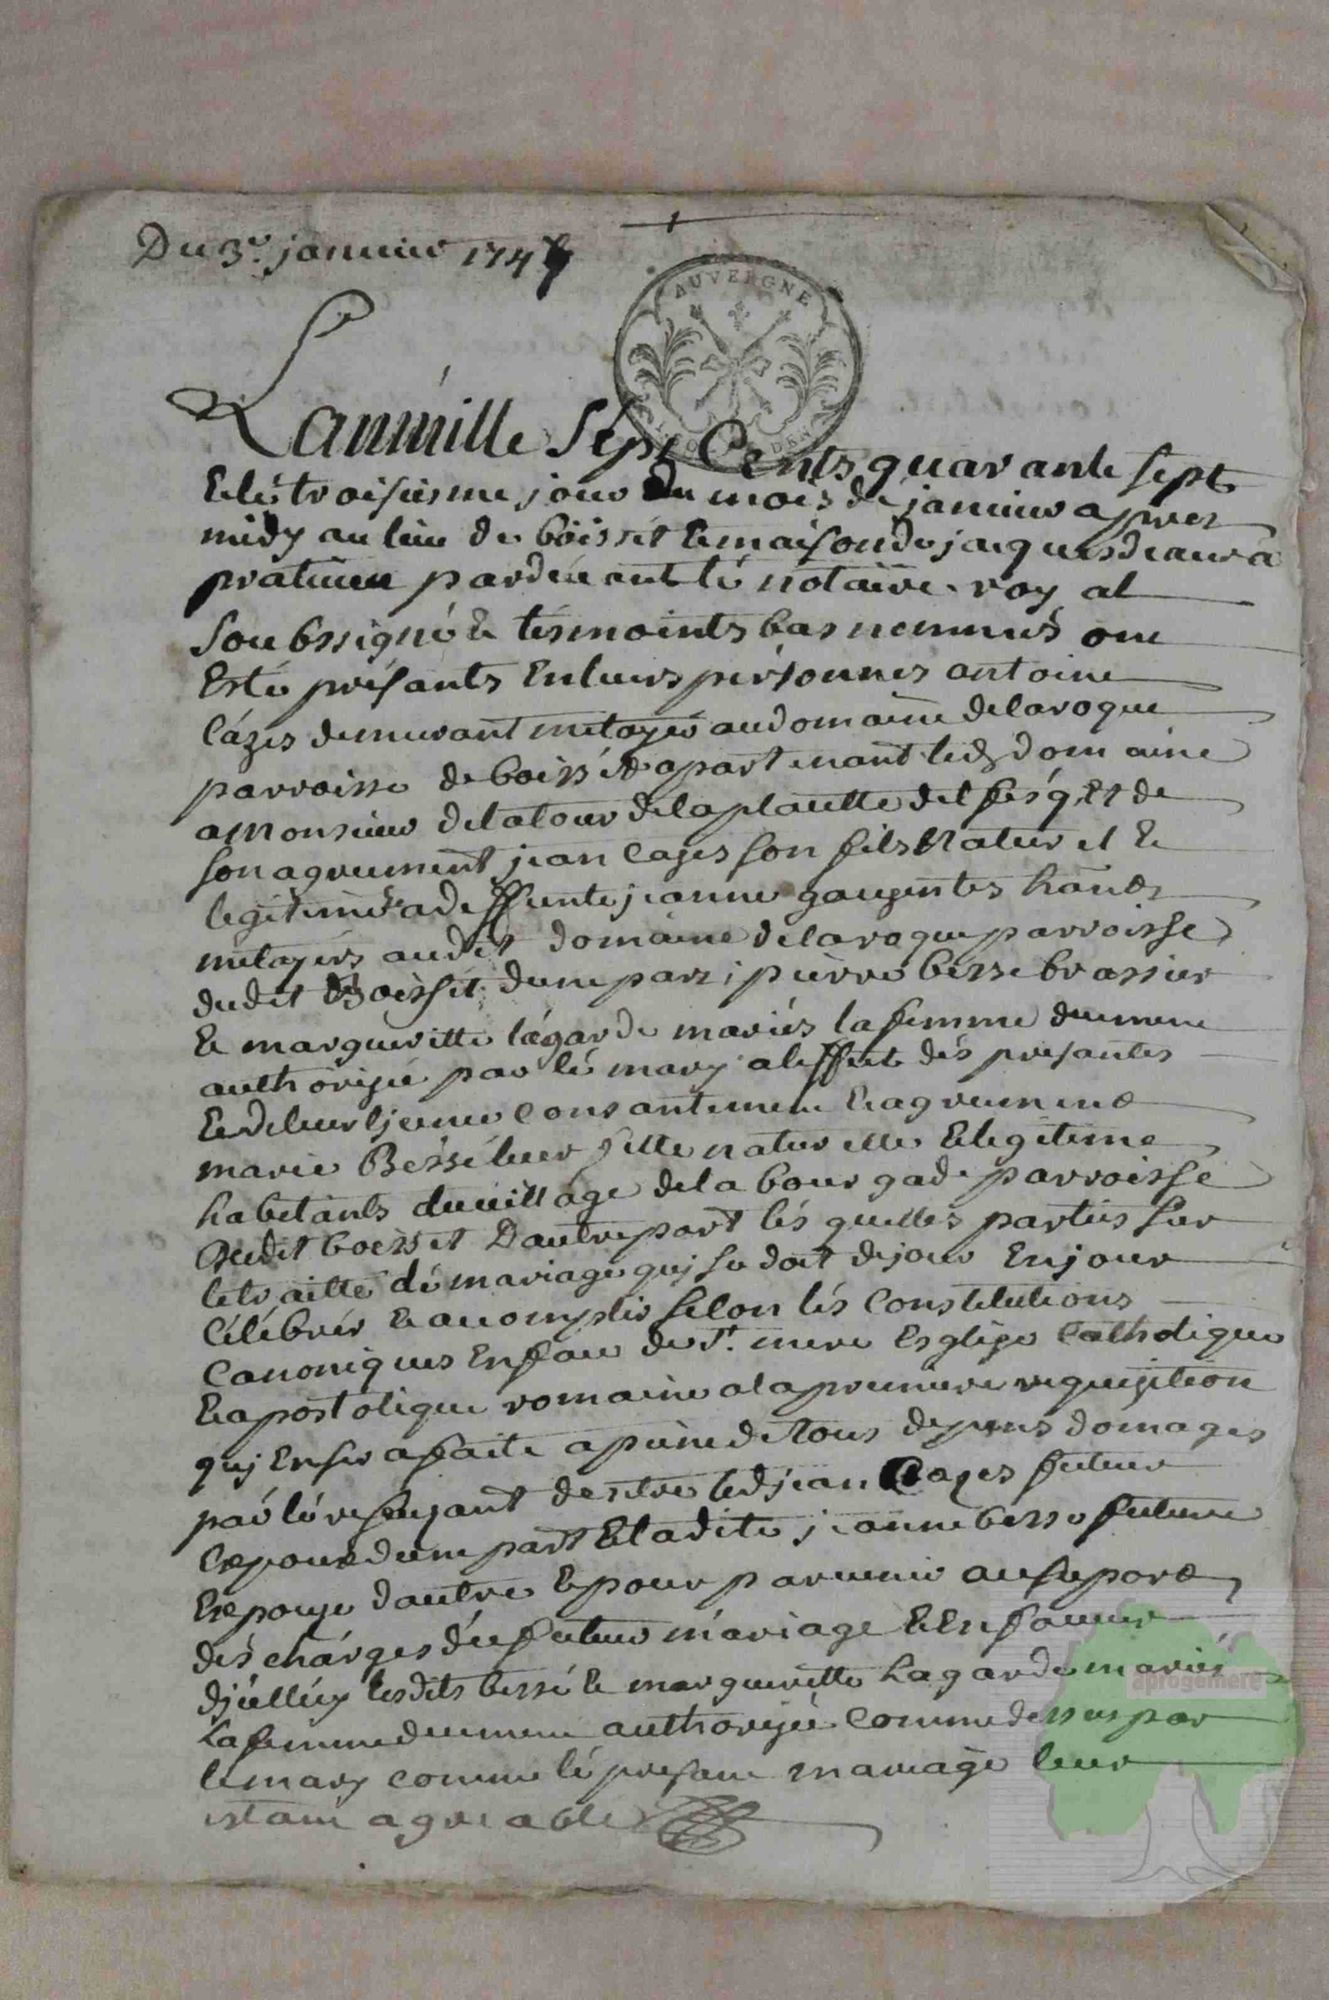 Du 3e. janvier 1747
AUVERGNE
Lan mille Sept Cents quarante Sept
Et lé troisiesme jour du mois de janvier apres
midy au lieu de boisset Et maison de jacques
praticien pardevant lé notaire royal
Soubssigné Et tesmoints bas nommés ont
Esté présants En leurs personnes antoine
Cázes demeurant metayer au domaine de laroque
parroisse de boissét apartenant led domaine
a Monsieur delatour delaplanette et de
son agreement jean Cazes son fils Naturel Et
legitime a deffunte jeanne habts
métayers au dit domaine de laroque parroisse
dudit Boisset dune part ; pierre besse brassier
Et margueritte lagarde mariés la femme duement
authorizée par lé mary a leffet dés presantes
Et de leur consantement Et agreement
marie Béssé leur fille naturelle Et legitime
habitants du village de la bourgade parroisse
dudit boisset Dautre part lés quelles parties sur
le traitté dé mariage quj se doit de jour En jour
Célébrér Et acomplir selon lés Constitutions
Canoniques En face de Ste. mere Esglize Catholique
Et apostolique romaine a la premiere requizition
quj En sera faite a peine de tous depens domages
par lé refuzant dentre led jean Cazes futeur
Expoux dune part Et ladite jeanne besse future
Expouze dautre Et pour parvenir au suport
dés chárges du futeur máriage Et En faveur
djcelluy lesdits bessé Et margueritte Lagarde mariés
La femme duement authorizée comme dessus par
le mary comme lé presant mariage leur
estant agreable
aprogemere